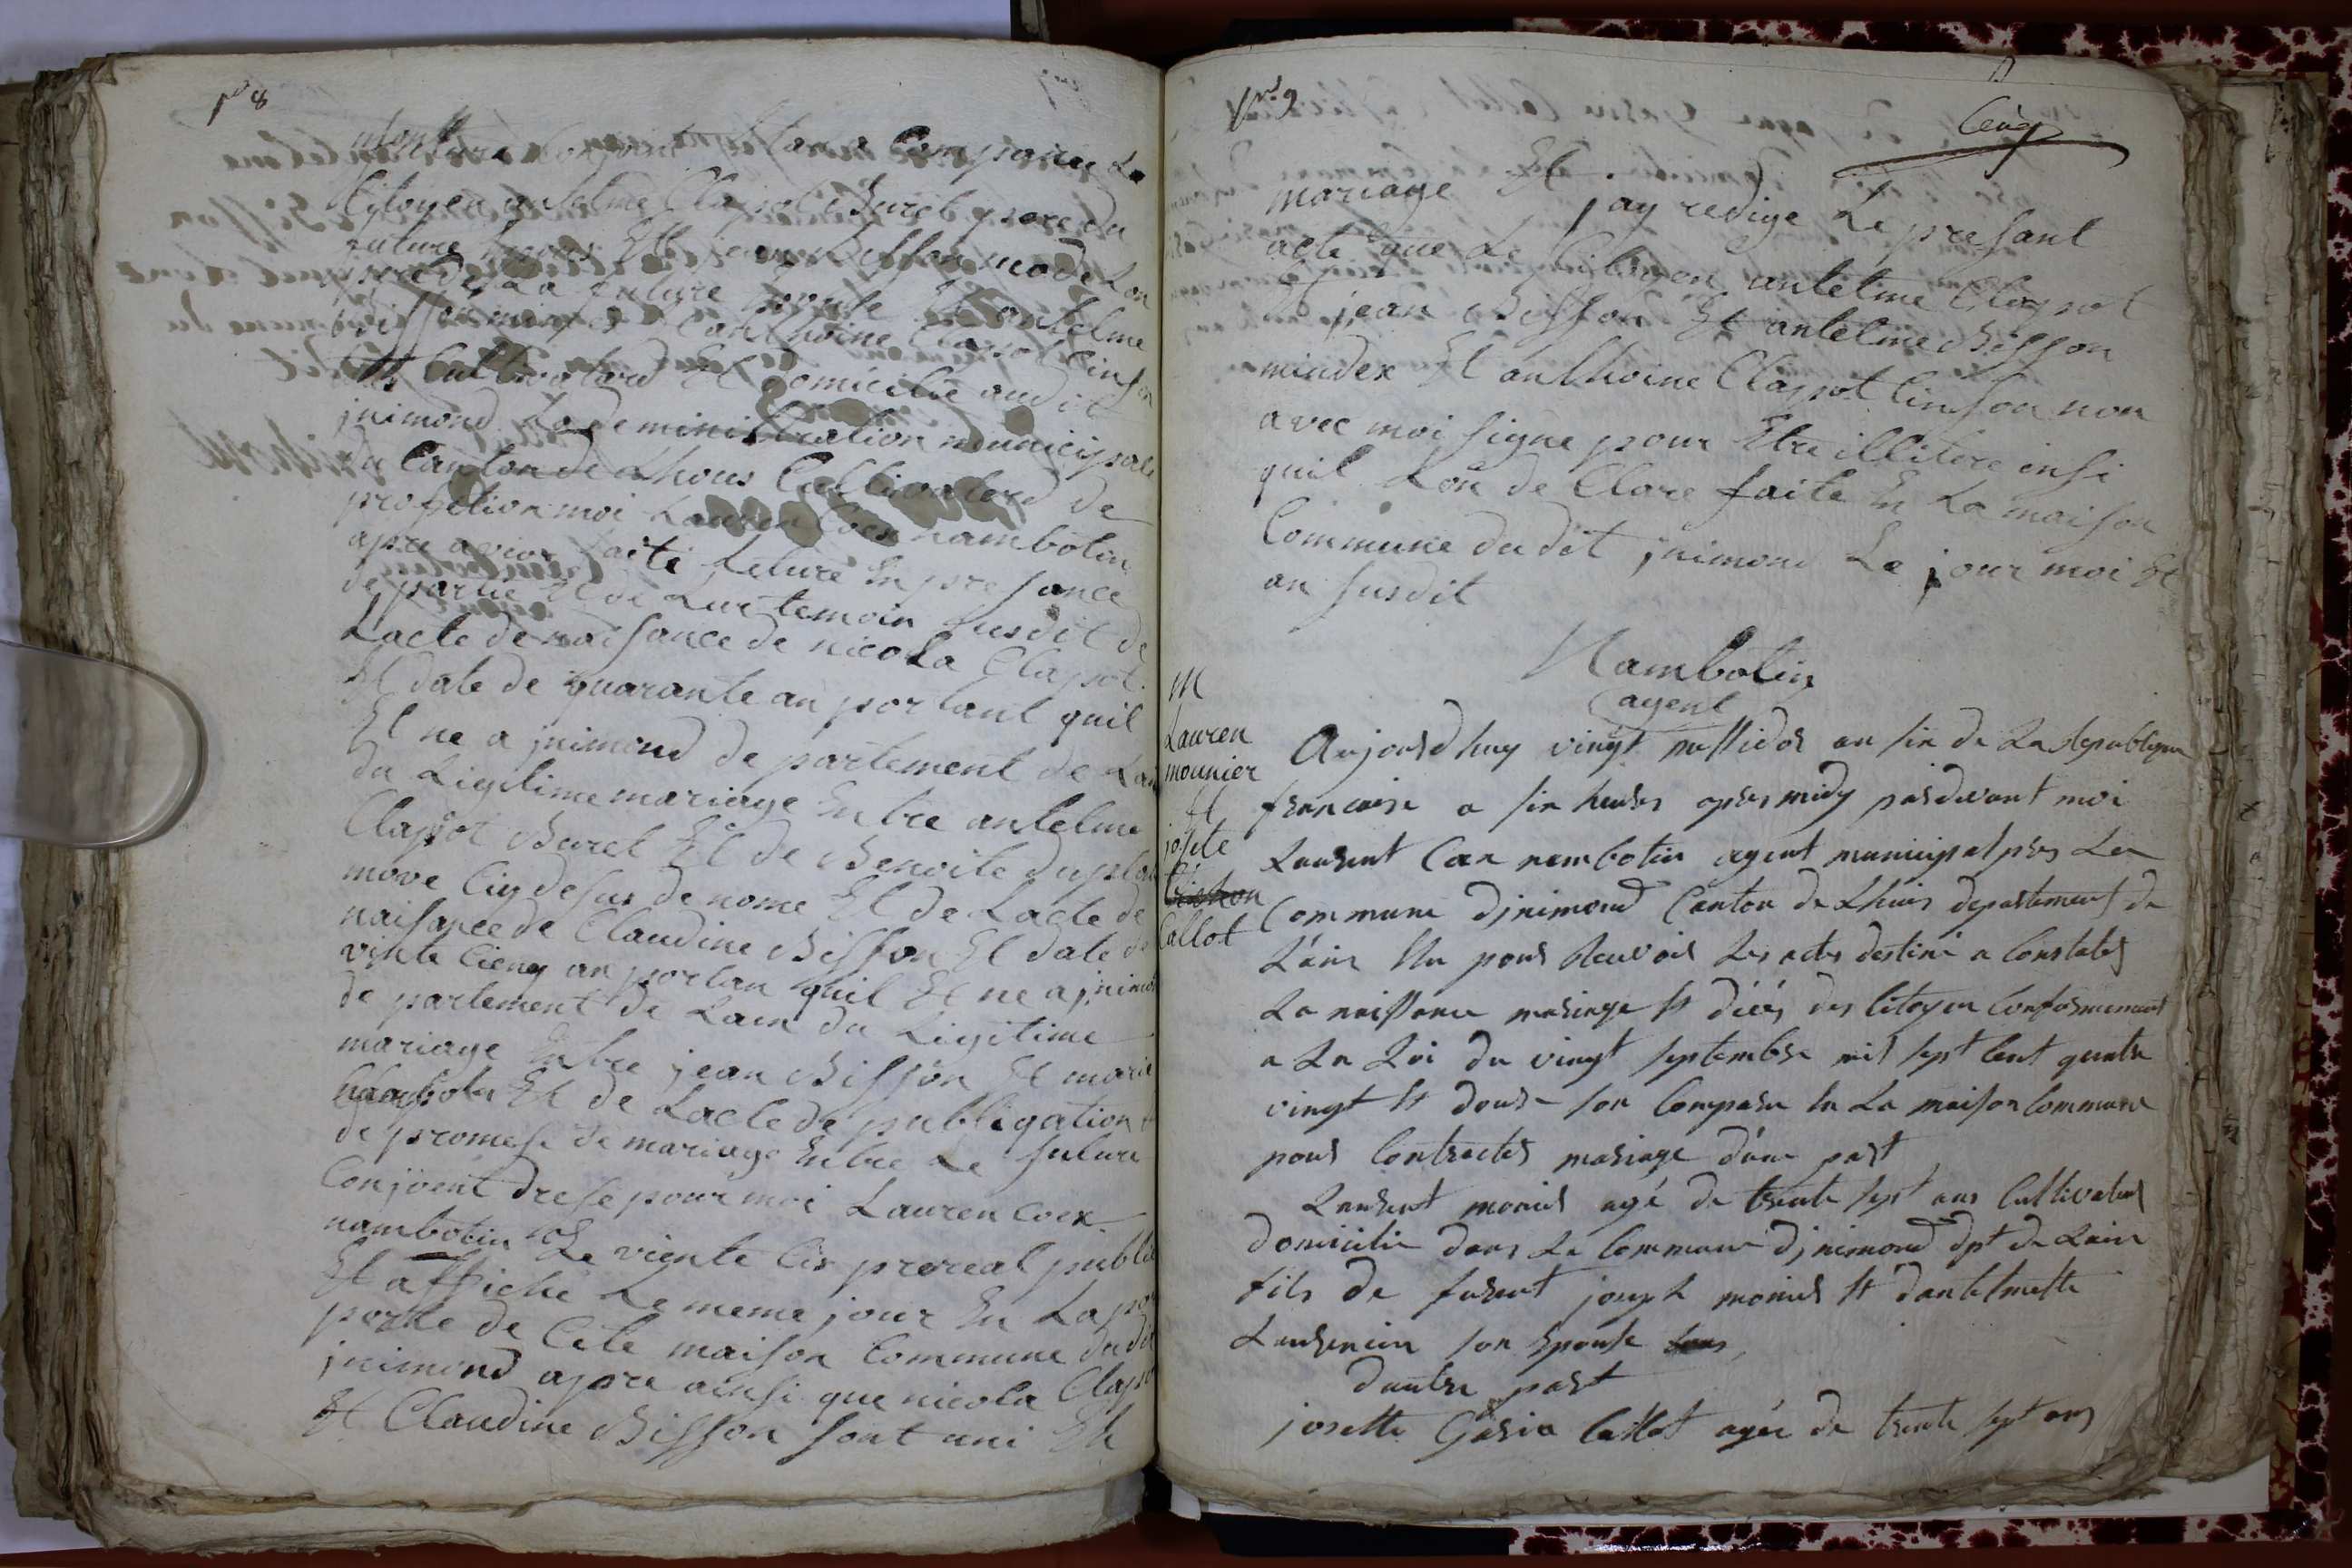 no 8
Conjoint Étans Comparu Le
Citoyen antelme Clapot Buret pere du
future Epous Et jean Bisson modelon
pere de La future Epouse Et antelme
Bisson mindex Et anthoine Clapot Cinson
Cultivatord Et domicilie audit
jnimond Lademinitration municipale
du Canton de Lhous Cultivatord de
profetion moi Lauren Coex nambotin
apre avior faite Leture En presance
de partie Et de Leur temoin susdit de
Lacte de naisance de nicola Clapot
Et date de quarante an portant quil
Et ne a jnimond de partement de Lain
du Ligitime mariage Entre antelme
Clapot Buret Et de Benoite
move Ciy desus de nome Et de Lacte de
naisance de Claudine Bisson Et date de
vinte Cienq an portan quil Et ne a jnimond
de partement de Lain du Ligitime
mariage Entre jean Bisson Et marie
Et de Lacte de publigation
de promese de mariage Entre Le future
Conjoent drese pour moi Lauren Coex
nambotin Le viente Cis prereal publie
Et affiche Le meme jour En La
porte de Cete maison Commune dudit
jnimond apre ainsi que nicola Clapot
Et Claudine Bisson sont uni En
no 9
Cenq
mariage Et jay redige Le presant
acte que Le Citoyen antelme Clapot
Et jean Bisson Et antelme Bisson
mindex Et anthoine Clapot Cinson non
avec moi signe pour Etre illitere ensi
quil Lon de Clare faite En La maison
Commune dudit jnimond Le jour moi Et
an susdit
Nambotin
agent
M
Lauren
mounier
Et
josete
Callot
Aujourdhuy vingt messidor an six de La Republique
francaise a six heures apres midy pardevant moi
Laurent Coex nambotin agent municipal pres La
Commune djnimond Canton de Lhuis departement de
L'ain Elu pour Recevoir Les actes destiné a Constater
La naissance mariage Et décés des Citoyen Conformement
a La Loi du vingt septembre mil sept Cent quatre
vingt Et douse son Comparu En La maison Commune
pour Contracter mariage d'une part
Laurent monier agé de trente sept ans Cultivateur
domicilié dans La Commune djnimond dpt de Lain
fils de furent joseph monier Et dantelmette
Laurencin son Epouse
dautre part
josette Gasiv Callot agée de trente sept ans